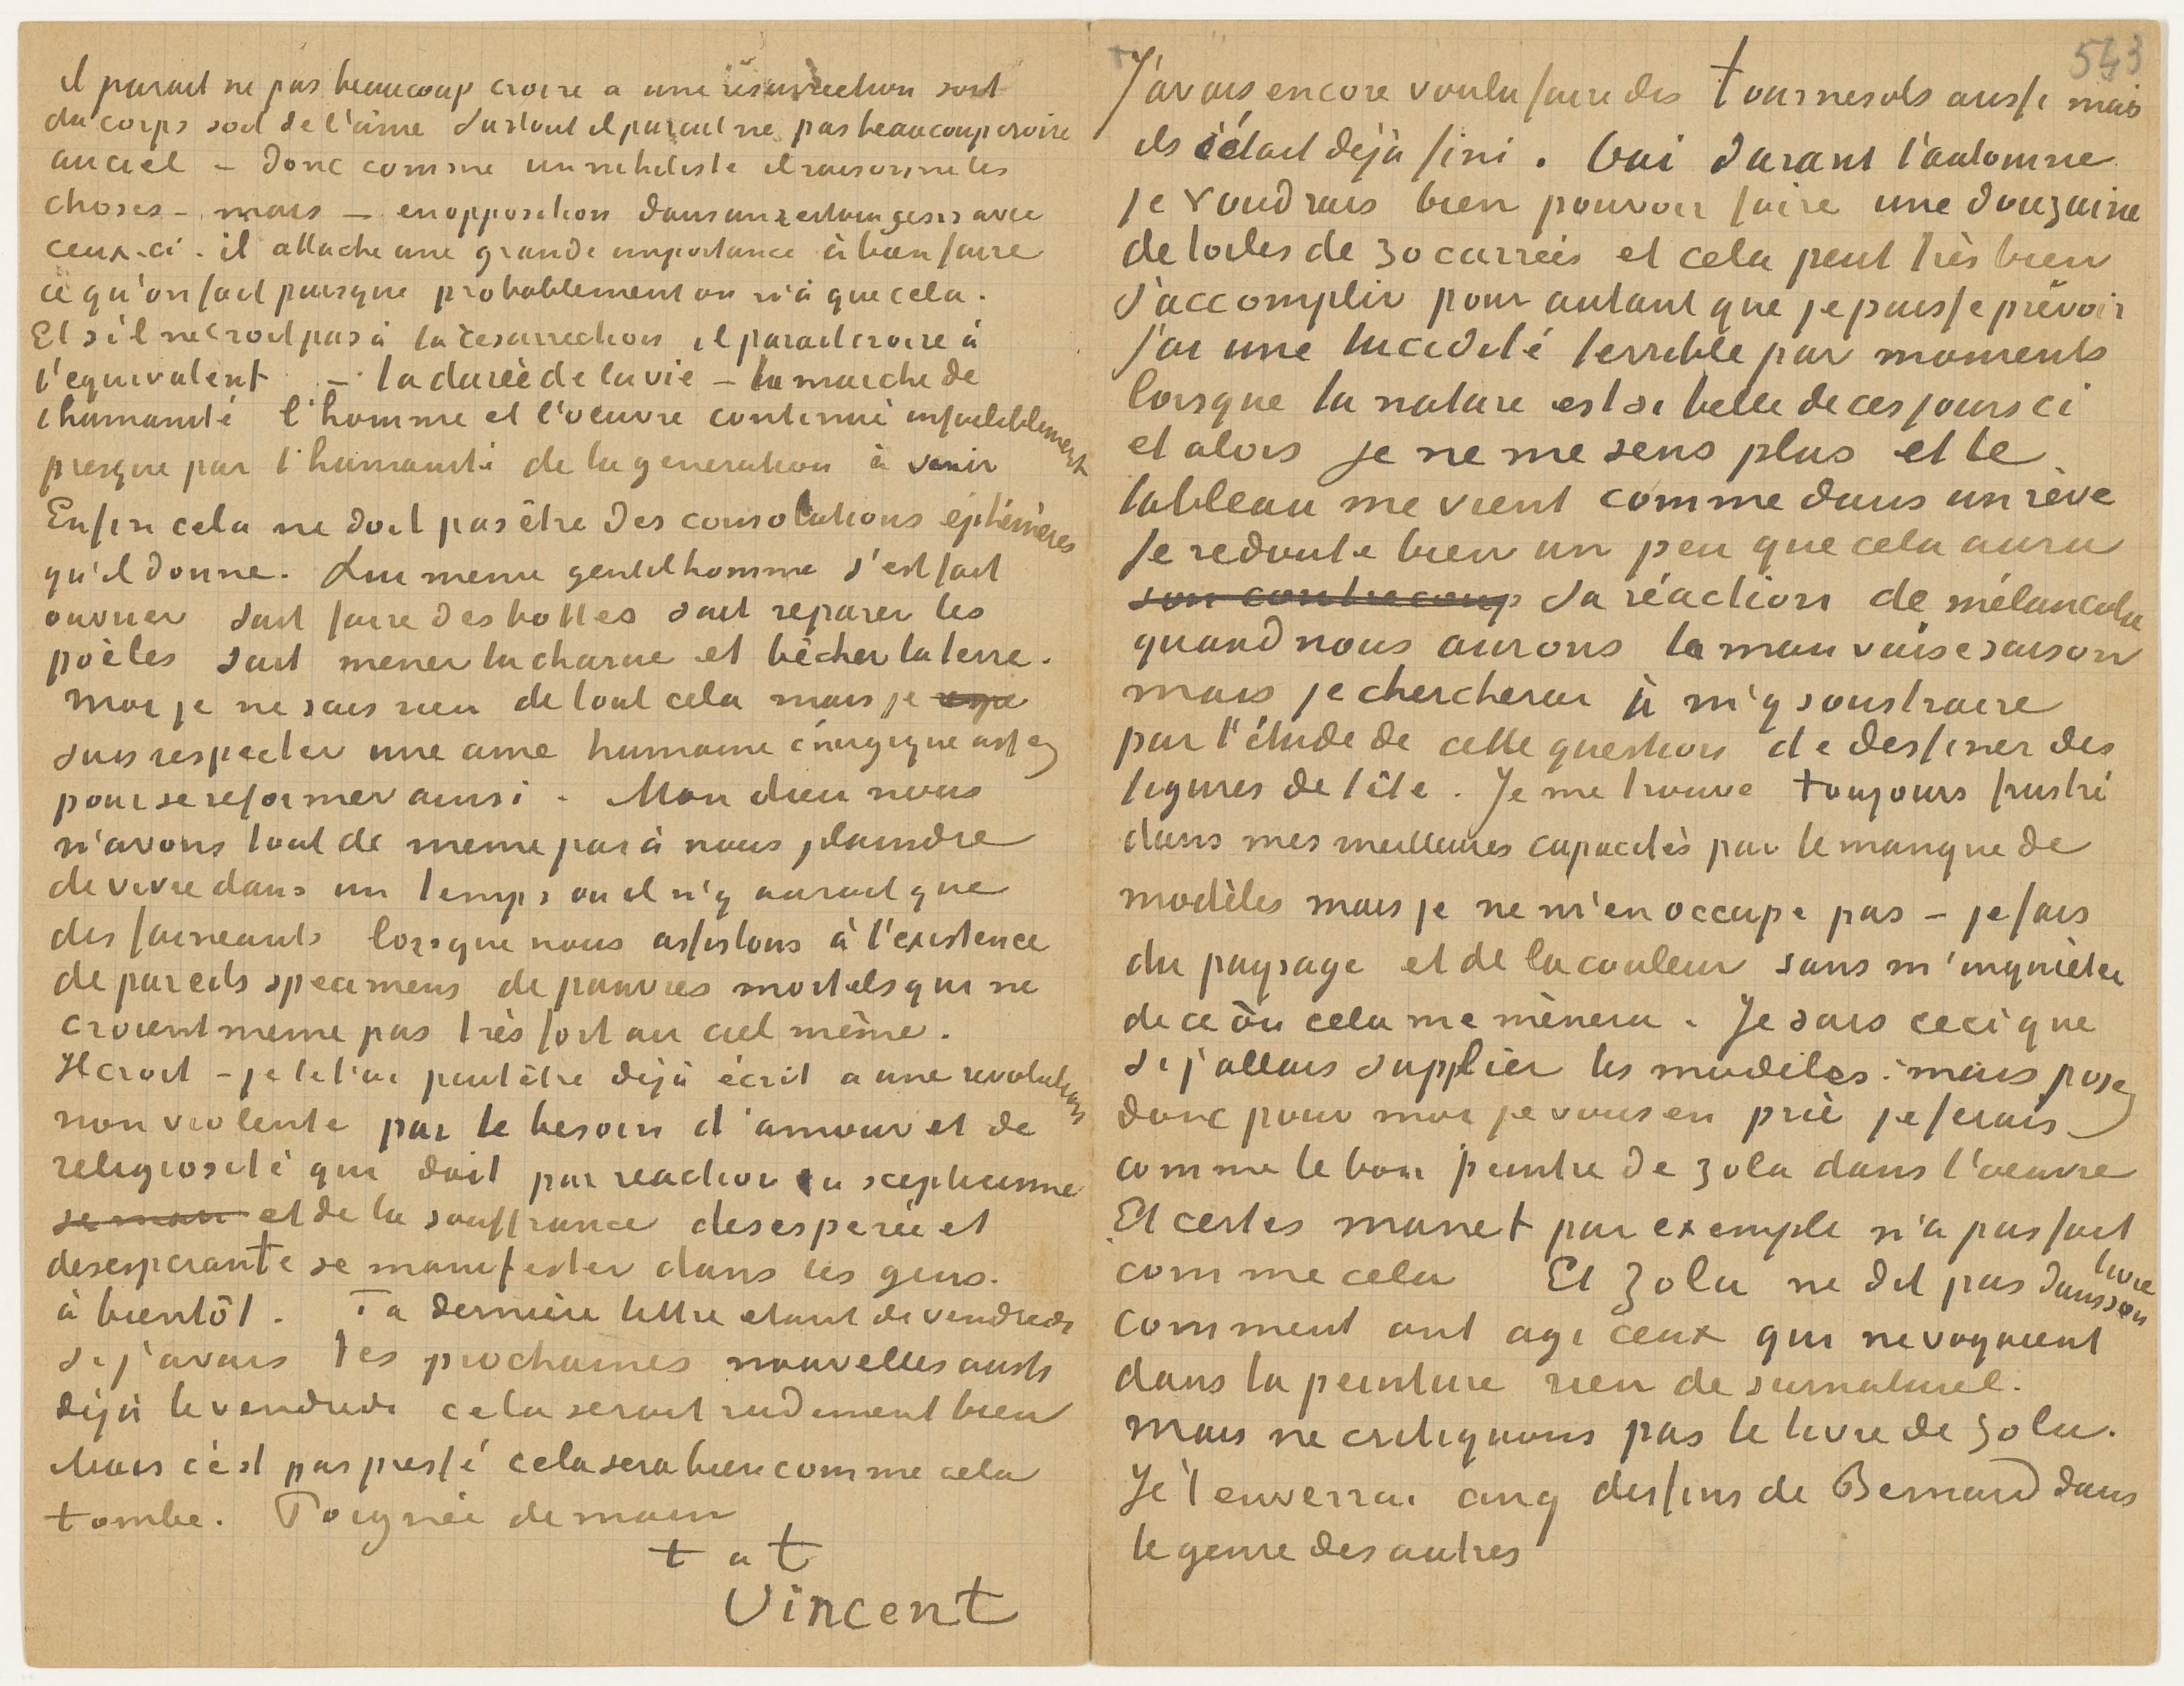 il parait ne pas beaucoup croire a une résurrection soit
du corps soit de l'âme surtout il parait ne pas beaucoup croire
au ciel – donc comme un nihiliste il raisonne les
choses – mais – en opposition dans un certain sens avec
ceux-ci. il attache une grande importance à bien faire
ce qu'on fait puisque probablement on n'à que cela.
Et s'il ne croit pas à la résurrection il parait croire à
l'equivalent – la durée de la vie – la marche de
l'humanité l'homme et l'oeuvre continué infailliblement
presque par l'humanité de la generation à venir
Enfin cela ne doit pas être des consolations éphémères
qu'il donne. Lui meme gentilhomme s'est fait
ouvrier sait faire des bottes sait reparer les
poêles sait mener la charue et bêcher la terre.
moi je ne sais rien de tout cela mais je
sais respecter une ame humaine énergique assez
pour se reformer ainsi. Mon dieu nous
n'avons tout de meme pas à nous plaindre
de vivre dans un temps ou il n'y aurait que
des faineants lorsque nous assistons à l'existence
de pareils specimens de pauvres mortels qui ne
croient meme pas très fort au ciel même.
Il croit – je te l'ai peutêtre déjà écrit a une revolution
non violente par le besoin d'amour et de
religiosité qui doit par reaction au scepticisme
se man et de la souffrance desesperée et
desesperante se manifester dans les gens.
à bientôt. Ta dernière lettre etant de vendredi
si j'avais tes prochaines nouvelles aussi
déjà le vendredi cela serait rudement bien
Mais c'est pas pressé cela sera bien comme cela
tombe. Poignée de main
t à t
Vincent
543
J'avais encore voulu faire des tournesols aussi mais
ils était déjà fini. Oui durant l'automne
je voudrais bien pouvoir faire une douzaine
de toiles de 30 carrées et cela peut très bien
s'accomplir pour autant que je puisse prévoir
j'ai une lucidité terrible par moments
lorsque la nature est si belle de ces jours ci
et alors je ne me sens plus et le
tableau me vient comme dans un rêve
Je redoute bien un peu que cela aura
son contrecoup sa réaction de mélancolie
quand nous aurons la mauvaise saison
mais je chercherai à m'y soustraire
par l'étude de cette question de dessiner des
figures de tête. Je me trouve toujours frustré
dans mes meilleures capacités par le manque de
modèles mais je ne m'en occupe pas – je fais
du paysage et de la couleur sans m'inquièter
de ce òu cela me mènera. Je sais ceci que
si j'allais supplier les modèles: mais posez
donc pour moi je vous en prie je ferais
comme le bon peintre de Zola dans l'oeuvre
Et certes manet par exemple n'a pas fait
comme cela Et Zola ne dit pas dans son livre
comment ont agi ceux qui ne voyaient
dans la peinture rien de surnaturel.
mais ne critiquons pas le livre de Zola.
Je t'enverrai cinq dessins de Bernard dans
le genre des autres